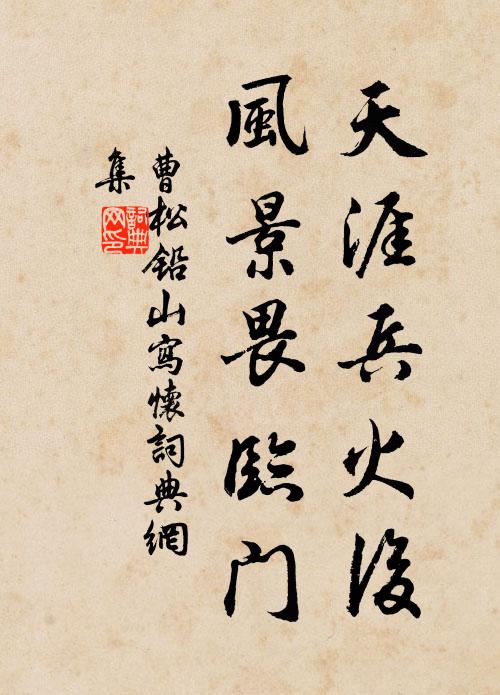 天涯兵火後
風景畏臨门
曹松鉛山寫懷詞典網
集
詞典
网印